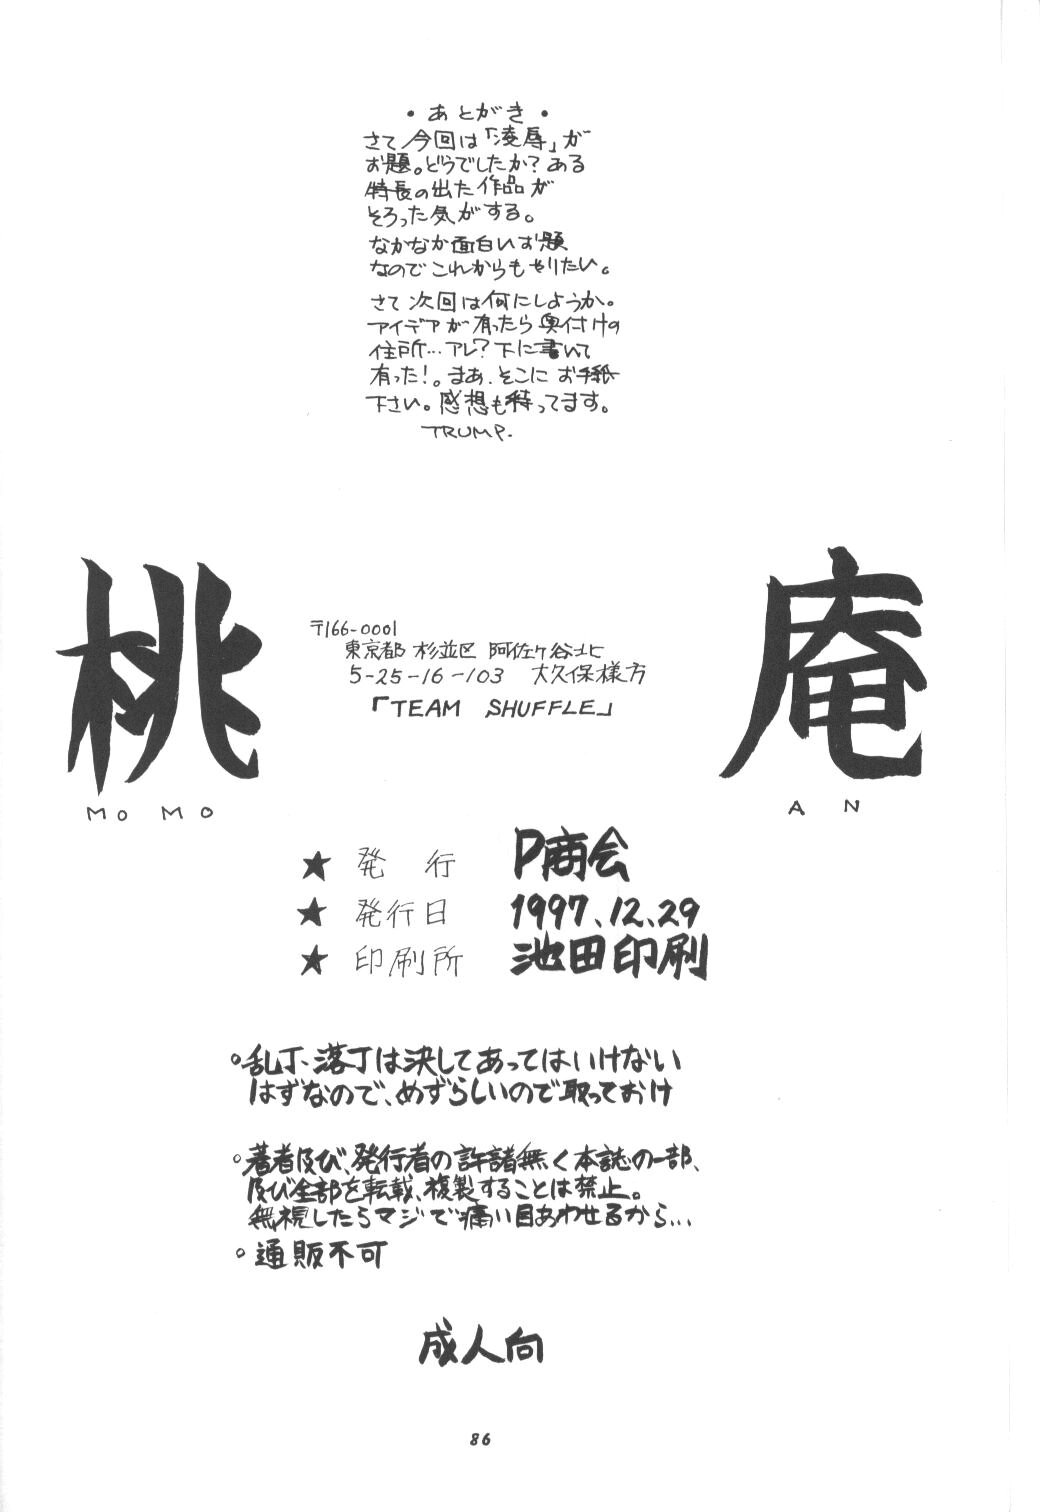 ・あとがき・
さて今回は「凌辱」が
お題。どうでしたか？ある
特長の出た作品が
そろった気がする。
なかなか面白いお題
なのでこれからもやりたい。
さて次回は何にしようか。
アイデアが有ったら奥付けの
住所…アレ？下に書いて
有った！。まあ、そこにお手紙
下さい。感想も待ってます。
TRUMP.
桃庵
MOMO AN
〒166-0001
東京都杉並区阿佐ヶ谷北
5-25-16-103 大久保様方
「TEAM SHUFFLE」
★発行 P商会
★発行日 1997.12.29
★印刷所 池田印刷
。乱丁、落丁は決してあってはいけない
はずなので、めずらしいので取っておけ
。著者及び、発行者の許諾無く本誌の一部、
及び全部を転載、複製することは禁止。
無視したらマジで痛い目あわせるから…
。通販不可
成人向
86